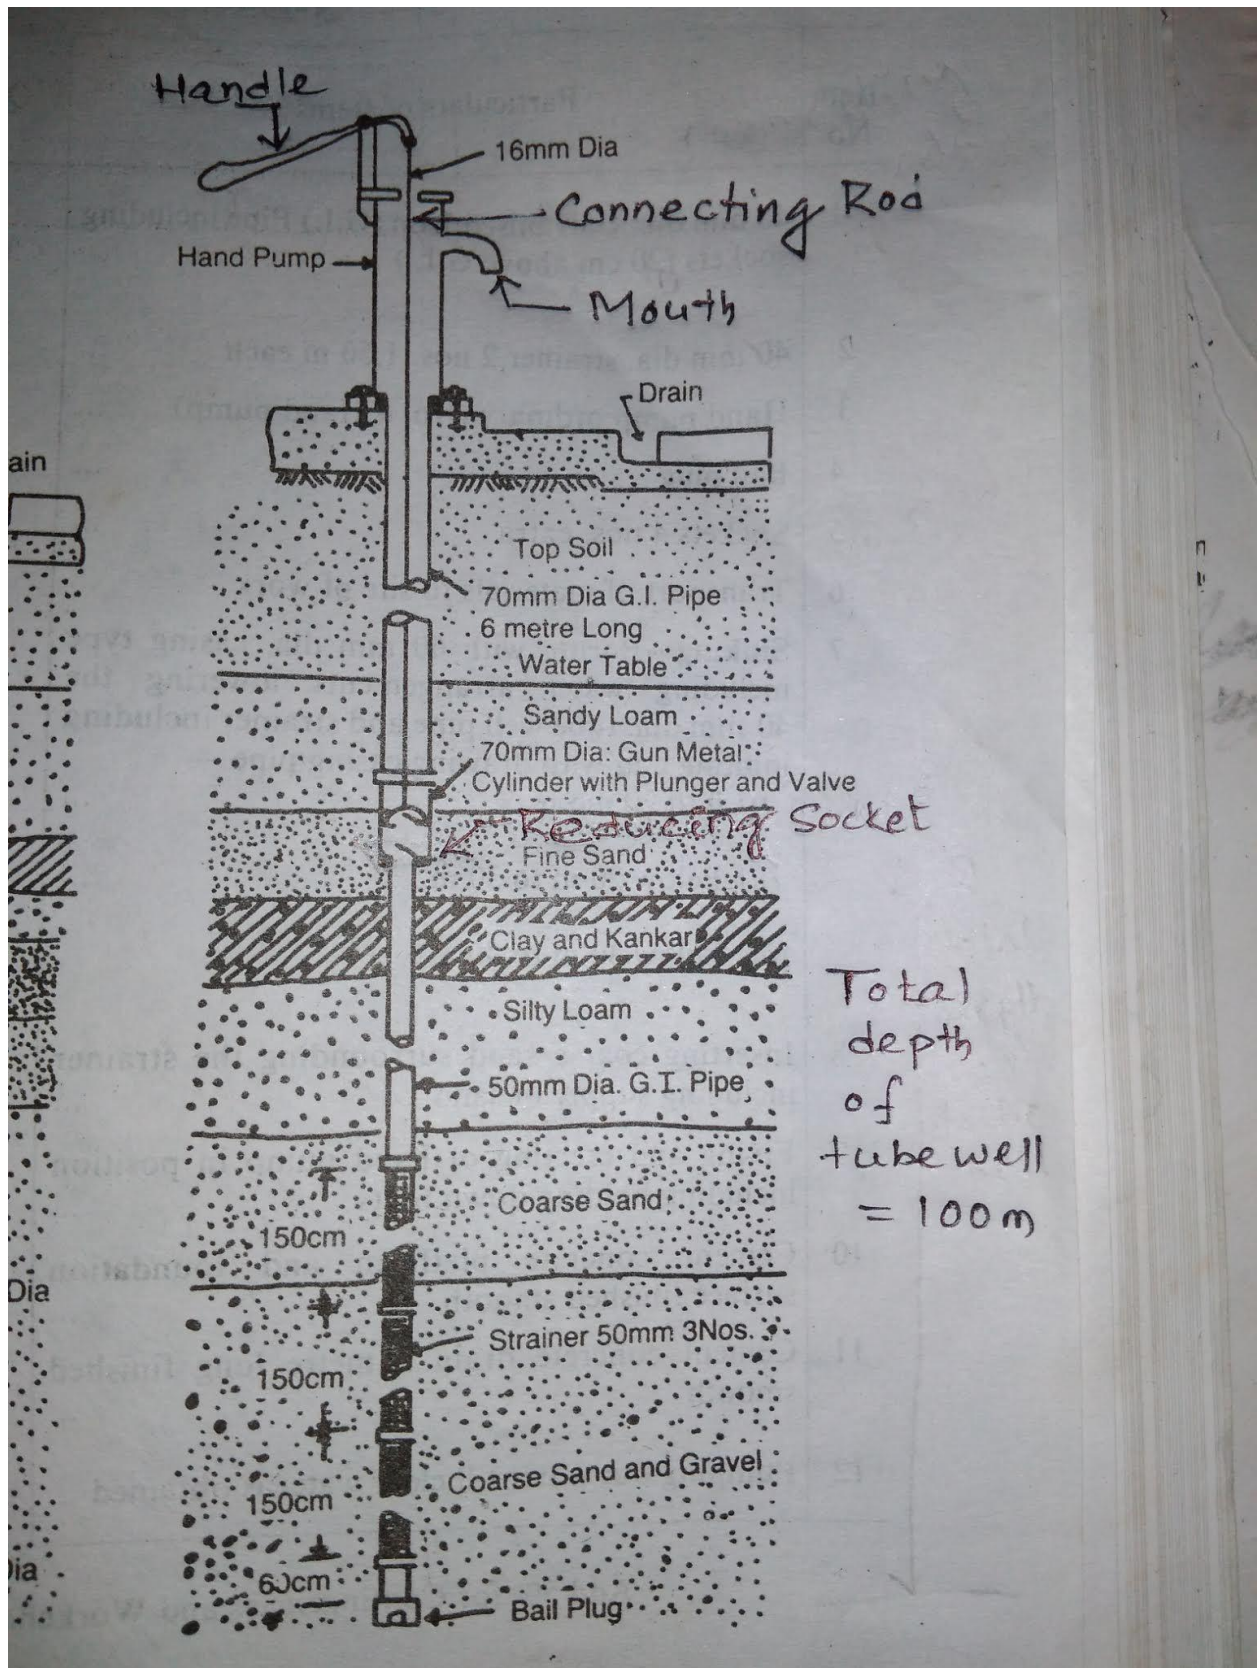 Handle
16mm Dia
Connecting Rod
Hand Pump
Mouth
Drain
ain
Top Soil
70mm Dia G.I. Pipe
6 metre Long
Water Table
Sandy Loam
70mm Dia: Gun Metal
Cylinder with Plunger and Valve
Reducing Socket
Fine Sand
Clay and Kankar
Total
depth
of
tube well
= 100m
Silty Loam
50mm Dia. G.I. Pipe
Coarse Sand
150cm
Dia
Strainer 50mm 3Nos.
150cm
Coarse Sand and Gravel
150cm
Dia
60cm
Bail Plug